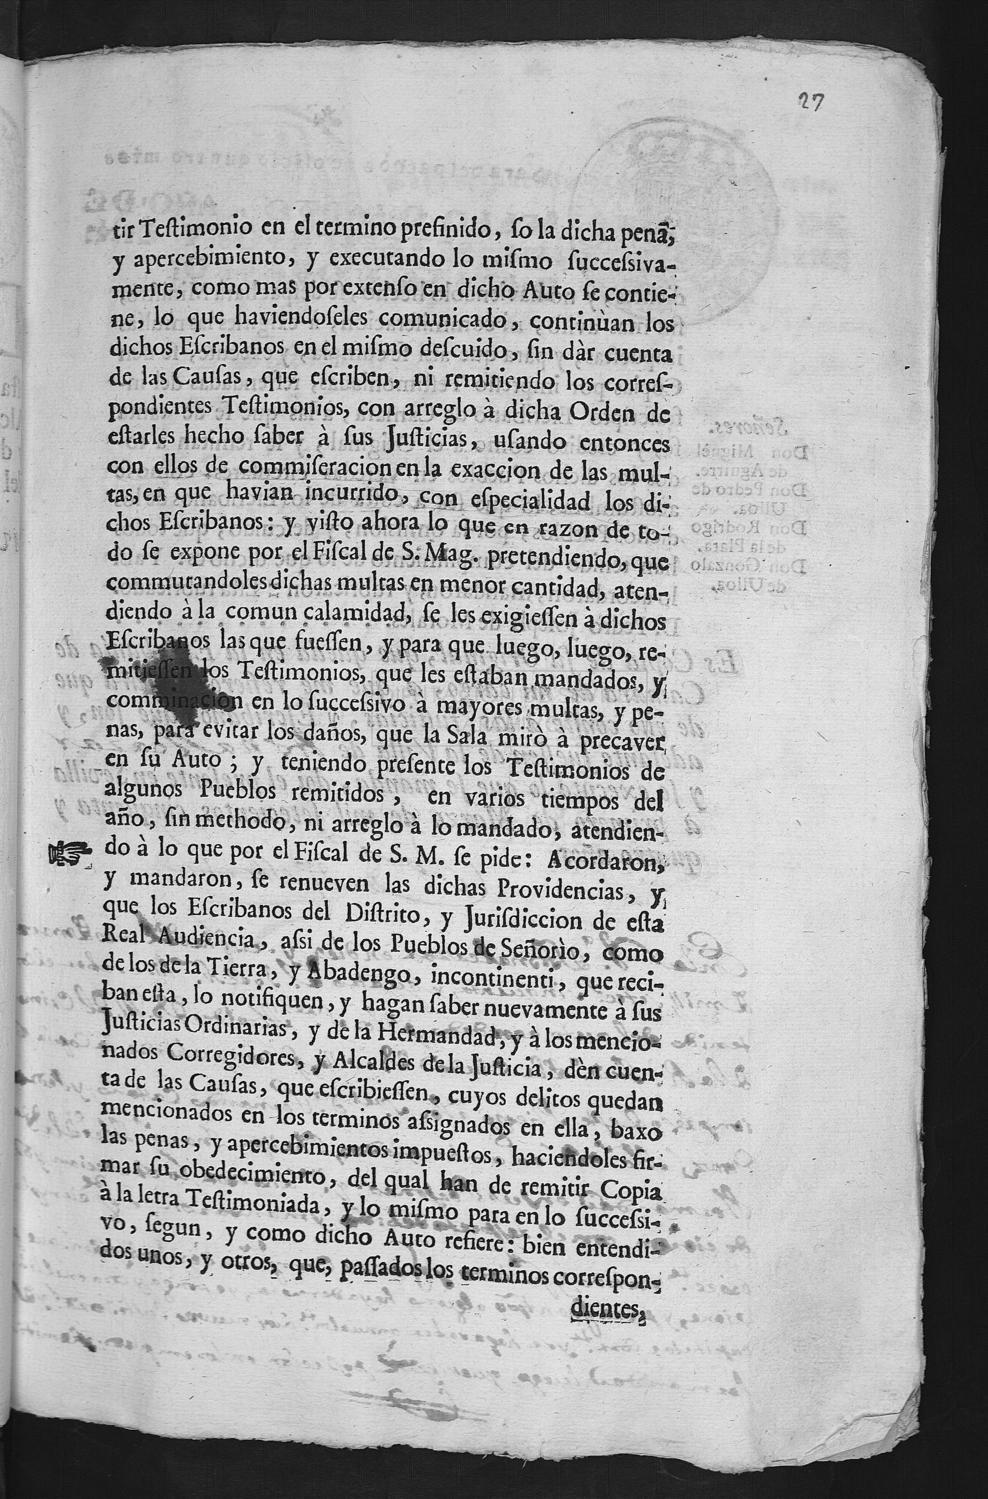 27
tir Teſtimonio en el termino prefinido, ſo la dicha pena,
y apercebimiento, y executando lo miſmo ſucceſsiva-
mente, como mas por extenſo en dicho Auto ſe contie-
ne, lo que haviendoſeles comunicado, continùan los
dichos Eſcribanos en el miſmo deſcuido, ſin dàr cuenta
de las Cauſas, que eſcriben, ni remitiendo los correſ-
pondientes Teſtimonios, con arreglo à dicha Orden de
eſtarles hecho ſaber à ſus Juſticias, uſando entonces
con ellos de commiſeracion en la exaccion de las mul-
tas, en que havian incurrido, con eſpecialidad los di-
chos Eſcribanos: y viſto ahora lo que en razon de to-
do ſe expone por el Fiſcal de S. Mag. pretendiendo, que
commutandoles dichas multas en menor cantidad, aten-
diendo à la comun calamidad, ſe les exigieſſen à dichos
Eſcribanos las que fueſſen, y para que luego, luego, re-
mitieſſen los Teſtimonios, que les eſtaban mandados, y
comminacion en lo ſucceſsivo à mayores multas, y pe-
nas, para evitar los daños, que la Sala mirò à precaver
en ſu Auto; y teniendo preſente los Teſtimonios de
algunos Pueblos remitidos, en varios tiempos del
año, ſin methodo, ni arreglo à lo mandado, atendien-
do à lo que por el Fiſcal de S. M. ſe pide: Acordaron,
y mandaron, ſe renueven las dichas Providencias, y
que los Eſcribanos del Diſtrito, y Juriſdiccion de eſta
Real Audiencia, aſsi de los Pueblos de Señorìo, como
de los de la Tierra, y Abadengo, incontinenti, que reci-
ban eſta, lo notifiquen, y hagan ſaber nuevamente à ſus
Juſticias Ordinarias, y de la Hermandad, y à los mencio-
nados Corregidores, y Alcaldes de la Juſticia, dèn cuen-
ta de las Cauſas, que eſcribieſſen, cuyos delitos quedan
mencionados en los terminos aſsignados en ella, baxo
las penas, y apercebimientos impueſtos, haciendoles fir-
mar ſu obedecimiento, del qual han de remitir Copia
à la letra Teſtimoniada, y lo miſmo para en lo ſucceſsi-
vo, ſegun, y como dicho Auto refiere: bien entendi-
dos unos, y otros, que, paſſados los terminos correſpon-
dientes,